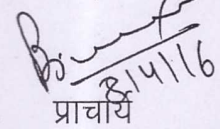 8/4/16
प्राचार्य